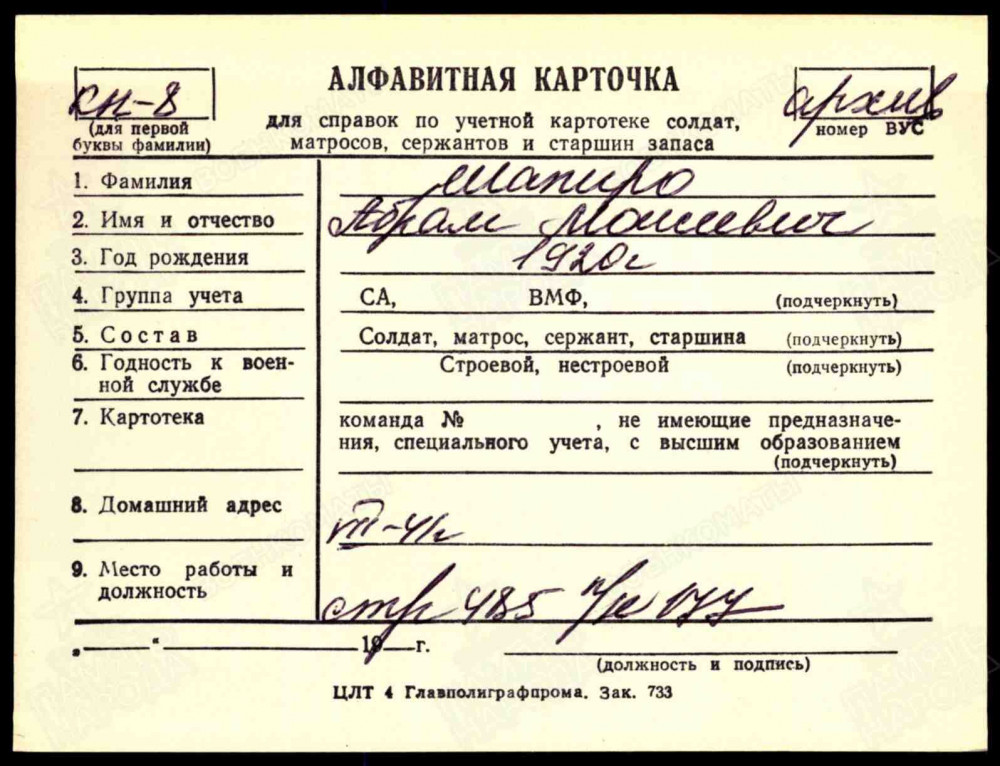 АЛФАВИТНАЯ КАРТОЧКА
кн-8
(для первой буквы фамилии)
для справок по учетной картотеке солдат,
матросов, сержантов и старшин запаса
архив
номер ВУС
1. Фамилия
Шапиро
2. Имя и отчество
Абрам Мошевич
3. Год рождения
1920г
4. Группа учета
СА, ВМФ, (подчеркнуть)
5. Состав
Солдат, матрос, сержант, старшина (подчеркнуть)
6. Годность к воен-
ной службе
Строевой, нестроевой (подчеркнуть)
7. Картотека
команда № , не имеющие предназначе-
ния, специального учета, с высшим образованием
(подчеркнуть)
8. Домашний адрес
9. Место работы и
должность
стр 485 п/н 177
„ “ 19 г.
(должность и подпись)
ЦЛТ 4 Главполиграфпрома. Зак. 733